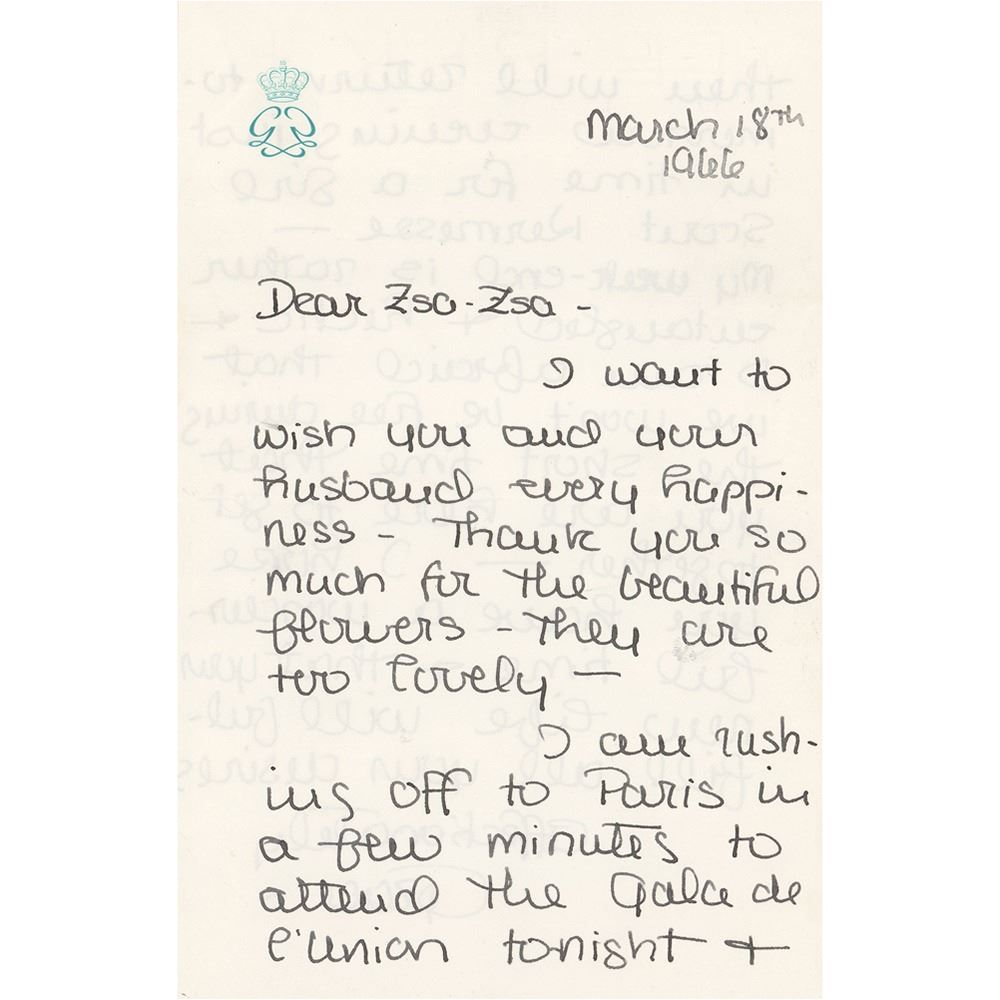 March 18th
1966
Dear Zsa-Zsa -
I want to
wish you and your
husband every happi-
ness - Thank you so
much for the beautiful
flowers - They are
too lovely —
I am rush-
ing off to Paris in
a few minutes to
attend the Gala de
l'Union tonight +